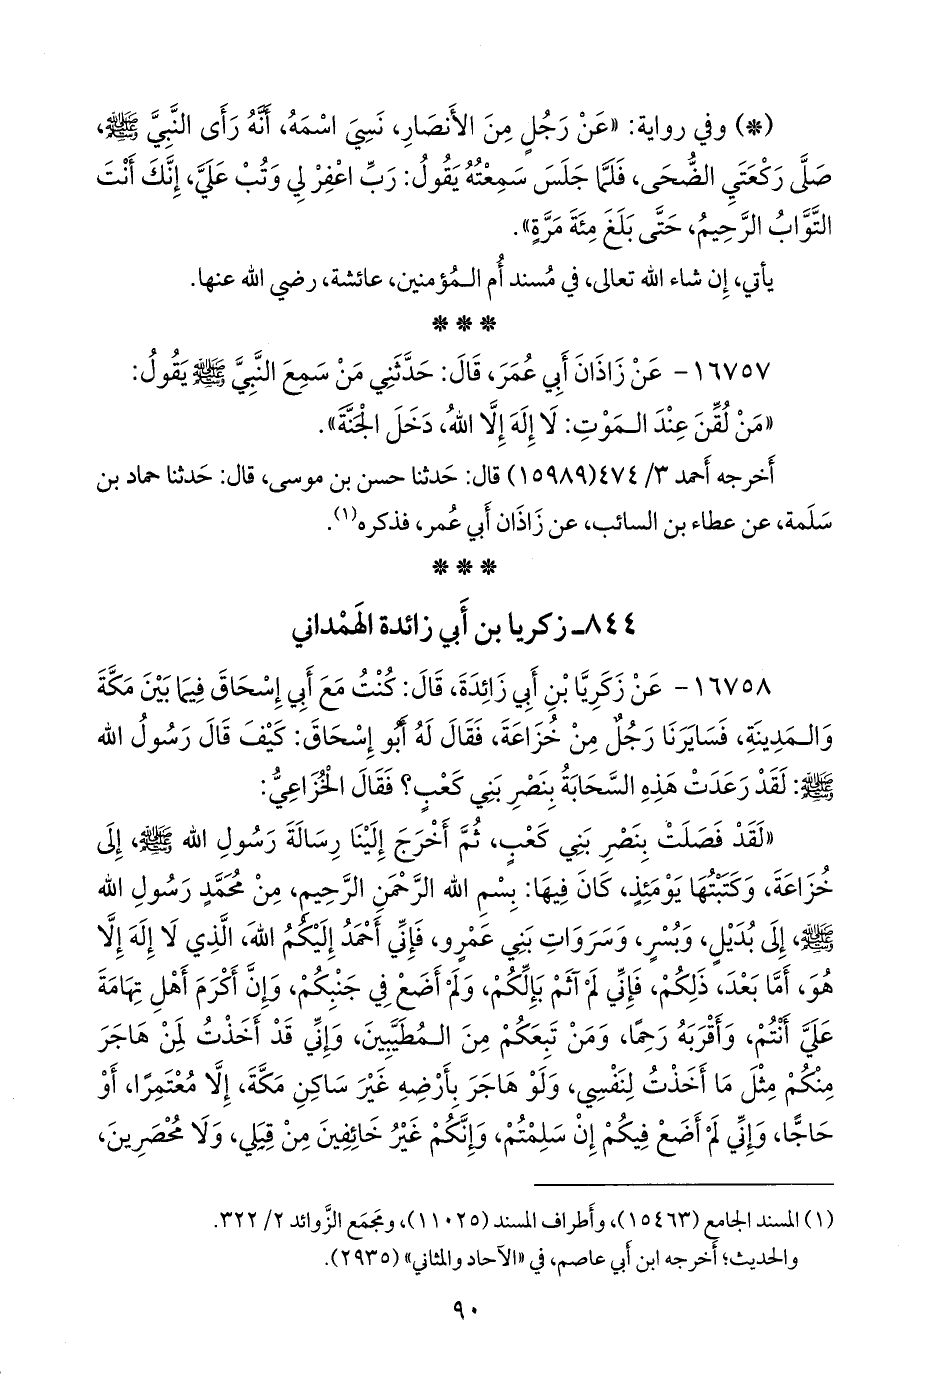 (*) وفي رواية: «عَنْ رَجُلٍ مِنَ الأَنصَارِ، نَسِيَ اسْمَهُ، أَنَّهُ رَأَى النَّبِيَّ ﷺ،
صَلَّى رَكْعَتَيِ الضُّحَى، فَلَمَّا جَلَسَ سَمِعْتُهُ يَقُولُ: رَبِّ اغْفِرْ لِي وَتُبْ عَلَيَّ، إِنَّكَ أَنْتَ
التَّوَّابُ الرَّحِيمُ، حَتَّى بَلَغَ مِئَةَ مَرَّةٍ».
يأتي، إن شاء الله تعالى، في مُسند أُم الـمُؤمنين، عائشة، رضي الله عنها.
* * *
١٦٧٥٧- عَنْ زَاذَانَ أَبِي عُمَرَ، قَالَ: حَدَّثَنِي مَنْ سَمِعَ النَّبِيَّ ﷺ يَقُولُ:
«مَنْ لُقِّنَ عِنْدَ الـمَوْتِ: لَا إِلَهَ إِلَّا اللهُ، دَخَلَ الْجَنَّةَ».
أَخرجه أَحمد ٣/ ٤٧٤(١٥٩٨٩) قال: حَدثنا حسن بن موسى، قال: حَدثنا حماد بن
سَلَمة، عن عطاء بن السائب، عن زَاذَان أَبي عُمر، فذكره(١).
* * *
٨٤٤ـ زكريا بن أَبي زائدة الهَمْداني
١٦٧٥٨- عَنْ زَكَرِيَّا بْنِ أَبِي زَائِدَةَ، قَالَ: كُنْتُ مَعَ أَبِي إِسْحَاقَ فِيمَا بَيْنَ مَكَّةَ
وَالـمَدِينَةِ، فَسَايَرَنَا رَجُلٌ مِنْ خُزَاعَةَ، فَقَالَ لَهُ أَبُو إِسْحَاقَ: كَيْفَ قَالَ رَسُولُ الله
ﷺ: لَقَدْ رَعَدَتْ هَذِهِ السَّحَابَةُ بِنَصْرِ بَنِي كَعْبٍ؟ فَقَالَ الْخُزَاعِيُّ:
«لَقَدْ فَصَلَتْ بِنَصْرِ بَنِي كَعْبٍ، ثُمَّ أَخْرَجَ إِلَيْنَا رِسَالَةَ رَسُولِ الله ﷺ، إِلَى
خُزَاعَةَ، وَكَتَبْتُهَا يَوْمَئِذٍ، كَانَ فِيهَا: بِسْمِ الله الرَّحْمَنِ الرَّحِيمِ، مِنْ مُحَمَّدٍ رَسُولِ الله
ﷺ، إِلَى بُدَيْلٍ، وَبُسْرٍ، وَسَرَوَاتِ بَنِي عَمْرٍو، فَإِنِّي أَحْمَدُ إِلَيْكُمُ اللهَ، الَّذِي لَا إِلَهَ إِلَّا
هُوَ، أَمَّا بَعْدَ، ذَلِكُمْ، فَإِنِّي لَمْ آثَمْ بِإِلِّكُمْ، وَلَمْ أَضَعْ فِي جَنْبِكُمْ، وَإِنَّ أَكْرَمَ أَهْلِ تِهَامَةَ
عَلَيَّ أَنْتُمْ، وَأَقْرَبَهُ رَحِمًا، وَمَنْ تَبِعَكُمْ مِنَ الـمُطَيَّبِينَ، وَإِنِّي قَدْ أَخَذْتُ لِمَنْ هَاجَرَ
مِنْكُمْ مِثْلَ مَا أَخَذْتُ لِنَفْسِي، وَلَوْ هَاجَرَ بِأَرْضِهِ غَيْرَ سَاكِنِ مَكَّةَ، إِلَّا مُعْتَمِرًا، أَوْ
حَاجًّا، وَإِنِّي لَمْ أَضَعْ فِيكُمْ إِنْ سَلِمْتُمْ، وَإِنَّكُمْ غَيْرُ خَائِفِينَ مِنْ قِبَلِي، وَلَا مُحْصَرِينَ،
(١) المسند الجامع (١٥٤٦٣)، وأطراف المسند (١١٠٢٥)، ومَجمَع الزَّوائد ٢/ ٣٢٢.
والحديث؛ أَخرجه ابن أَبي عاصم، في «الآحاد والمثاني» (٢٩٣٥).
٩٠